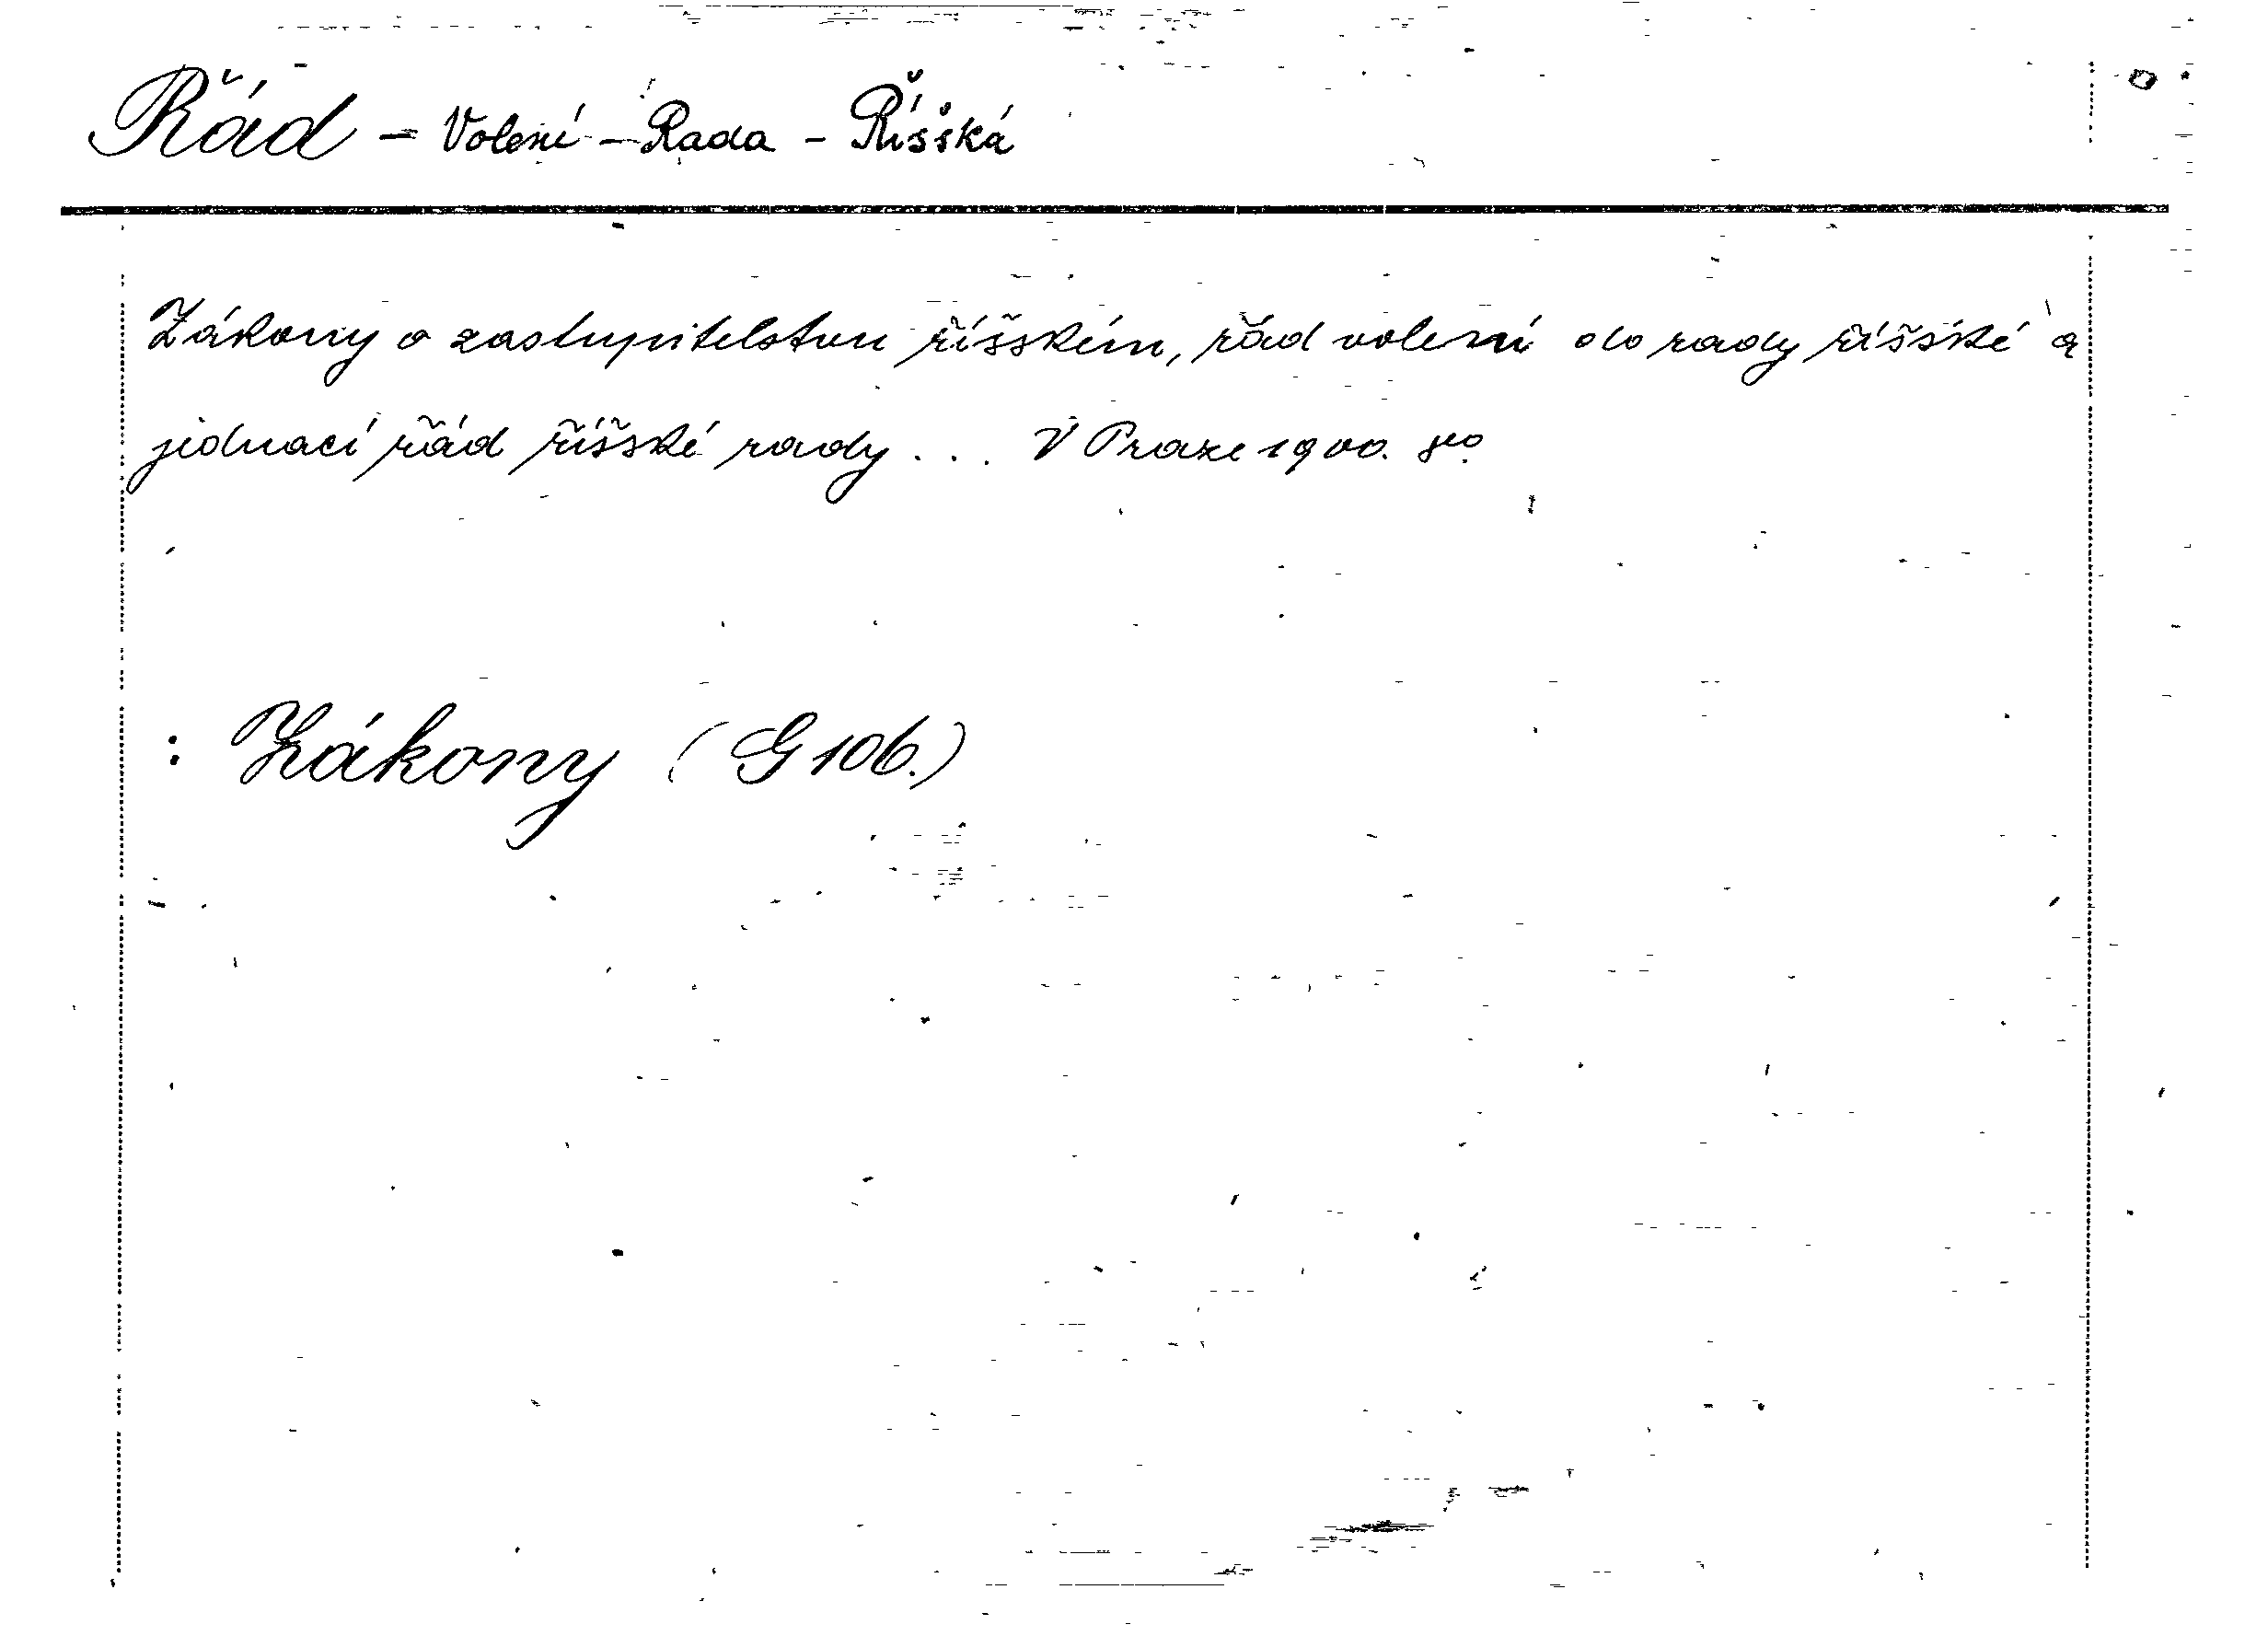 Řád - Volení - Rada - Říšská
Zákony o zastupitelstvu říšském, řád volení do rady říšské a
jednací řád říšské rady . . . V Praze 1900. 8º.
: Zákony (G 106.)